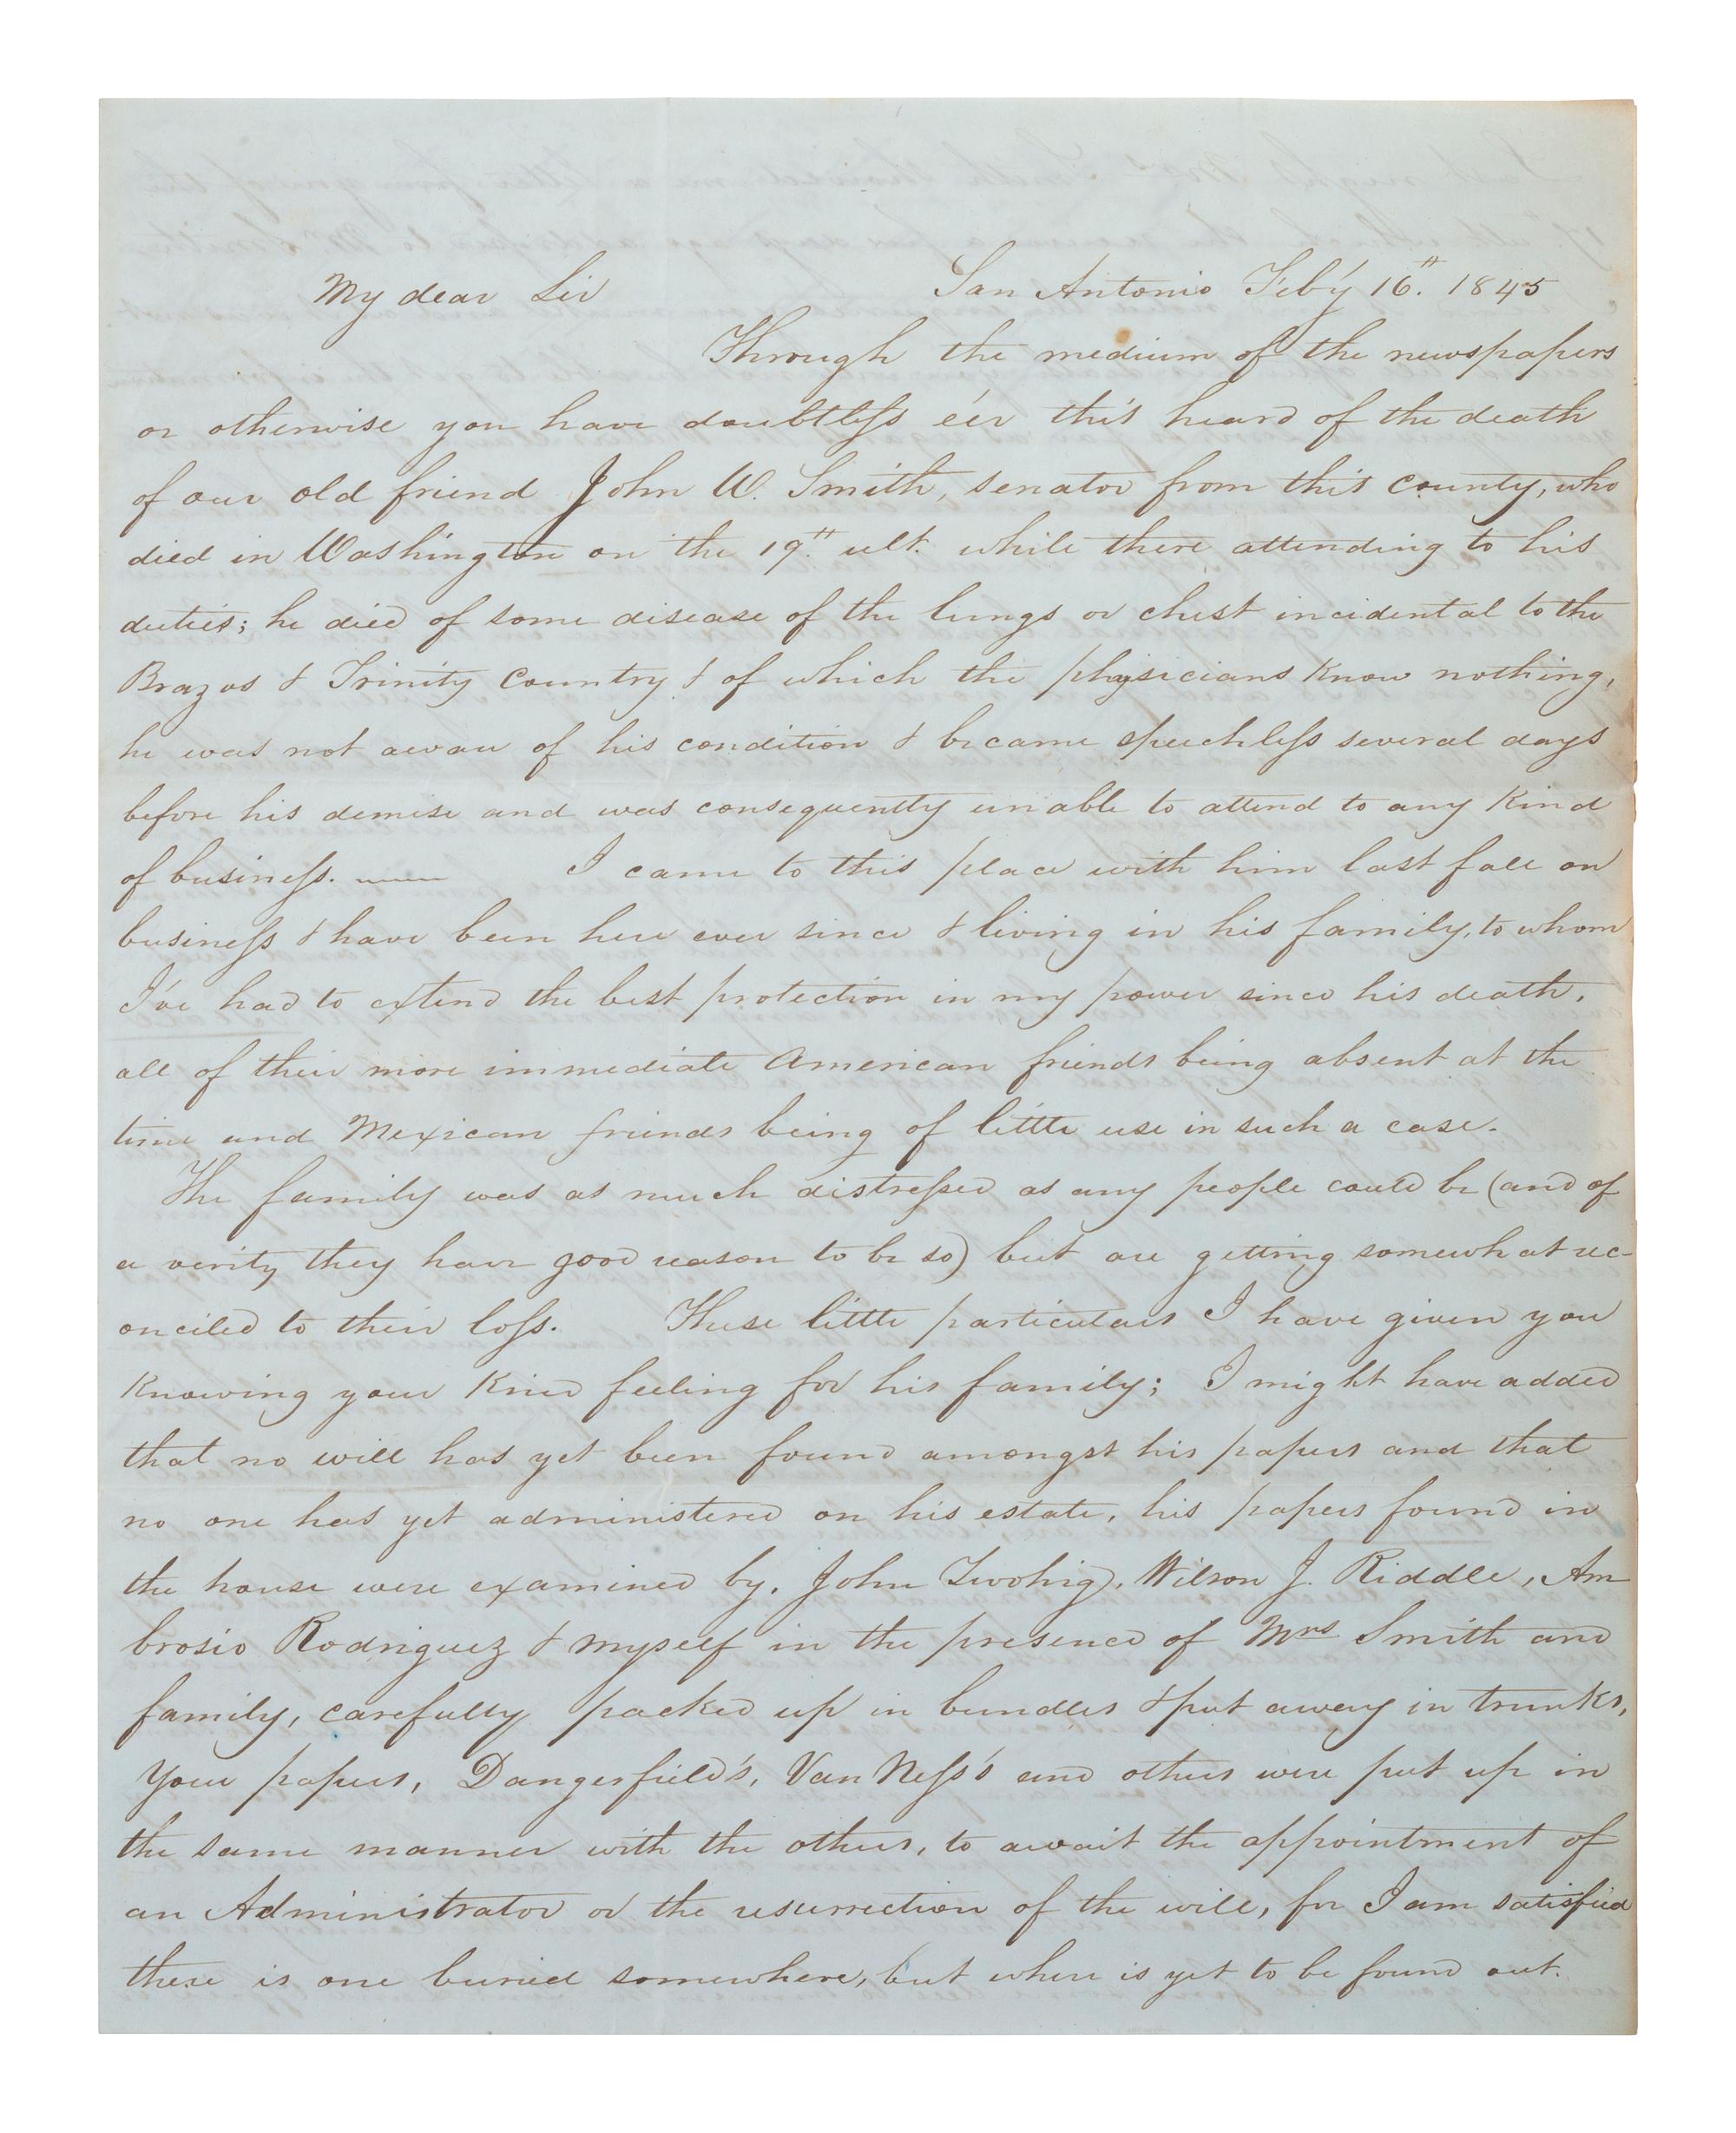 My dear Sir San Antonio Feb'y 16th. 1845
Through the medium of the newspapers
or otherwise you have doubtless e'er this heard of the death
of our old friend John W. Smith, senator from this county, who
died in Washington on the 19th. ult. while there attending to his
duties; he died of some disease of the lungs or chest incidental to the
Brazos & Trinity Country & of which the physicians know nothing,
he was not aware of his condition & became speechless several days
before his demise and was consequently unable to attend to any kind
of business. I came to this place with him last fall on
business & have been here ever since & living in his family, to whom
I've had to extend the best protection in my power since his death,
all of their more immediate American friends being absent at the
time and Mexican friends being of little use in such a case.
The family was as much distressed as any people could be (and of
a verity they have good reason to be so) but are getting somewhat rec-
onciled to their loss. These little particulars I have given you
knowing your kind feeling for his family; I might have added
that no will has yet been found amongst his papers and that
no one has yet administered on his estate, his papers found in
the house were examined by, John Twohig, Wilson J. Riddle, Am
brosio Rodriguez & myself in the presence of Mrs Smith and
family, carefully packed up in bundles & put away in trunks,
Your papers, Dangerfield's, Van Ness's and others were put up in
the same manner with the others, to await the appointment of
an Administrator or the resurrection of the will, for I am satisfied
there is one buried somewhere, but where is yet to be found out.